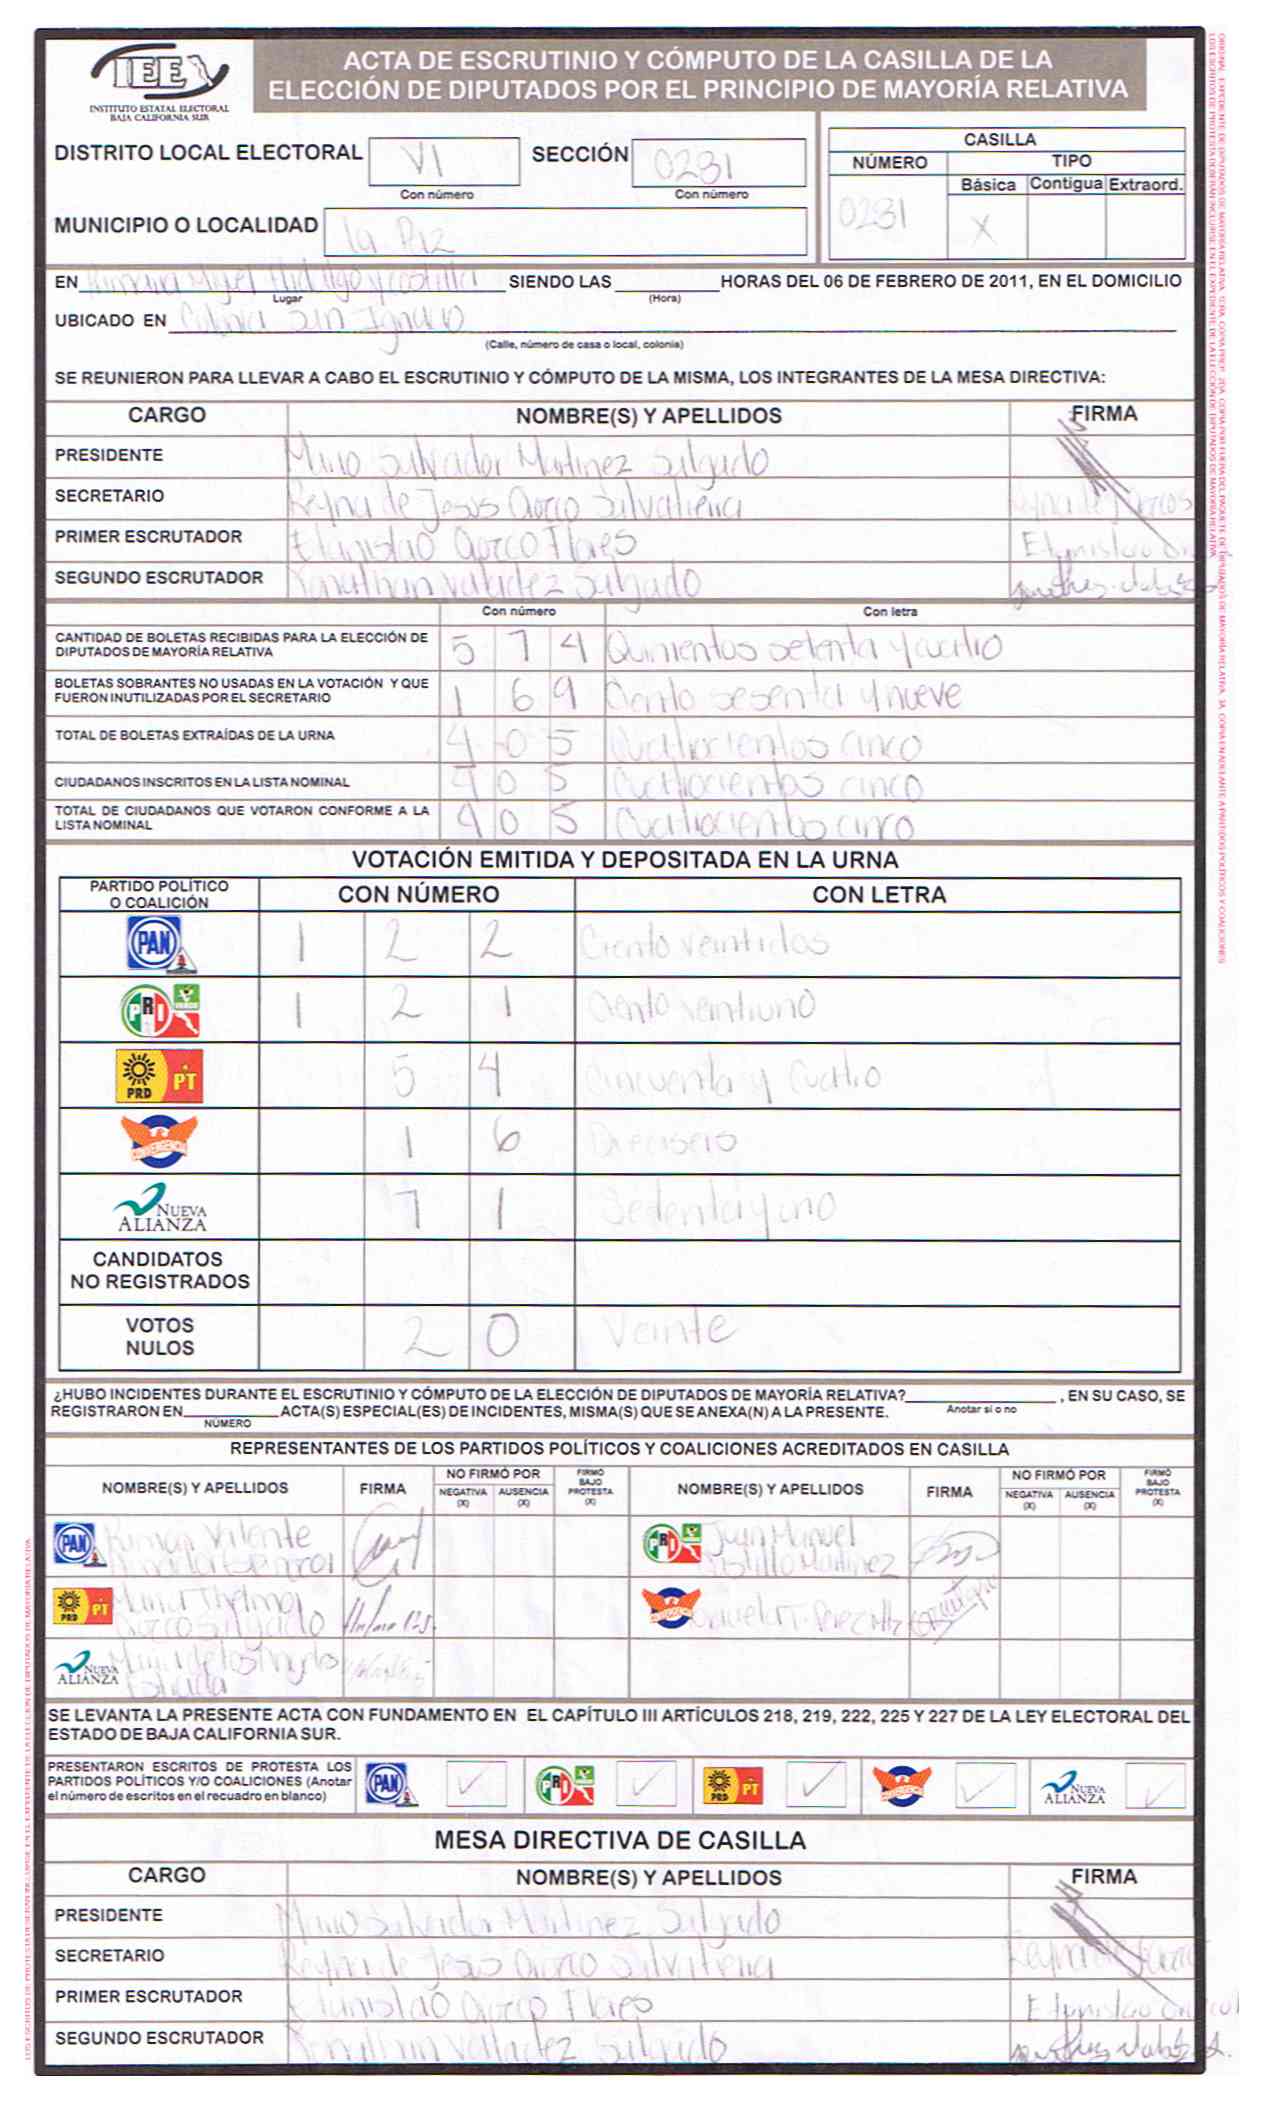 IEE
INSTITUTO ESTATAL ELECTORAL
BAJA CALIFORNIA SUR
ACTA DE ESCRUTINIO Y CÓMPUTO DE LA CASILLA DE LA
ELECCIÓN DE DIPUTADOS POR EL PRINCIPIO DE MAYORÍA RELATIVA
DISTRITO LOCAL ELECTORAL VI SECCIÓN 0231
Con número Con número
CASILLA
NÚMERO TIPO
Básica Contigua Extraord.
0231 X
MUNICIPIO O LOCALIDAD la Paz
EN Miguel Hidalgo y costilla SIENDO LAS HORAS DEL 06 DE FEBRERO DE 2011, EN EL DOMICILIO
Lugar (Hora)
UBICADO EN Colonia San Ignacio
(Calle, número de casa o local, colonia)
SE REUNIERON PARA LLEVAR A CABO EL ESCRUTINIO Y CÓMPUTO DE LA MISMA, LOS INTEGRANTES DE LA MESA DIRECTIVA:
CARGO NOMBRE(S) Y APELLIDOS FIRMA
PRESIDENTE Mario Salvador Martinez Salgado
SECRETARIO Reyna de Jesus Orozco Salvatierra
PRIMER ESCRUTADOR Etanislao Orozco Flores
SEGUNDO ESCRUTADOR Jonathan Valadez Salgado
Con número Con letra
CANTIDAD DE BOLETAS RECIBIDAS PARA LA ELECCIÓN DE
DIPUTADOS DE MAYORÍA RELATIVA 5 7 4 Quinientos setenta y cuatro
BOLETAS SOBRANTES NO USADAS EN LA VOTACIÓN Y QUE
FUERON INUTILIZADAS POR EL SECRETARIO 1 69 Ciento sesenta y nueve
TOTAL DE BOLETAS EXTRAÍDAS DE LA URNA 4 0 5 Cuatrocientos cinco
CIUDADANOS INSCRITOS EN LA LISTA NOMINAL 4 0 5 Cuatrocientos cinco
TOTAL DE CIUDADANOS QUE VOTARON CONFORME A LA
LISTA NOMINAL 4 0 5 Cuatrocientos cinco
VOTACIÓN EMITIDA Y DEPOSITADA EN LA URNA
PARTIDO POLÍTICO
O COALICIÓN CON NÚMERO CON LETRA
PAN 1 2 2 Ciento veintidos
PRI VERDE 1 2 1 Ciento veintiuno
PRD PT 5 4 Cincuenta y cuatro
CONVERGENCIA 1 6 Dieciseis
NUEVA ALIANZA 7 1 Setenta y uno
CANDIDATOS
NO REGISTRADOS
VOTOS
NULOS 2 0 Veinte
¿HUBO INCIDENTES DURANTE EL ESCRUTINIO Y CÓMPUTO DE LA ELECCIÓN DE DIPUTADOS DE MAYORÍA RELATIVA? , EN SU CASO, SE
Anotar si o no
REGISTRARON EN ACTA(S) ESPECIAL(ES) DE INCIDENTES, MISMA(S) QUE SE ANEXA(N) A LA PRESENTE.
NÚMERO
REPRESENTANTES DE LOS PARTIDOS POLÍTICOS Y COALICIONES ACREDITADOS EN CASILLA
NOMBRE(S) Y APELLIDOS FIRMA NO FIRMÓ POR NEGATIVA (X) AUSENCIA (X) FIRMÓ BAJO PROTESTA (X) NOMBRE(S) Y APELLIDOS FIRMA NO FIRMÓ POR NEGATIVA (X) AUSENCIA (X) FIRMÓ BAJO PROTESTA (X)
PAN Ramon Valente
Amador
PRI VERDE Juan Manuel
Castillo Martinez
PRD PT Maria Thelma
Orozco Salgado
CONVERGENCIA Perez
NUEVA ALIANZA Maria de los Angeles
Estrada
SE LEVANTA LA PRESENTE ACTA CON FUNDAMENTO EN EL CAPÍTULO III ARTÍCULOS 218, 219, 222, 225 Y 227 DE LA LEY ELECTORAL DEL
ESTADO DE BAJA CALIFORNIA SUR.
PRESENTARON ESCRITOS DE PROTESTA LOS
PARTIDOS POLÍTICOS Y/O COALICIONES (Anotar
el número de escritos en el recuadro en blanco)
PAN ✓ PRI VERDE ✓ PRD PT ✓ CONVERGENCIA ✓ NUEVA ALIANZA ✓
MESA DIRECTIVA DE CASILLA
CARGO NOMBRE(S) Y APELLIDOS FIRMA
PRESIDENTE Mario Salvador Martinez Salgado
SECRETARIO Reyna de Jesus Orozco Salvatierra
PRIMER ESCRUTADOR Etanislao Orozco Flores
SEGUNDO ESCRUTADOR Jonathan Valladez Salgado